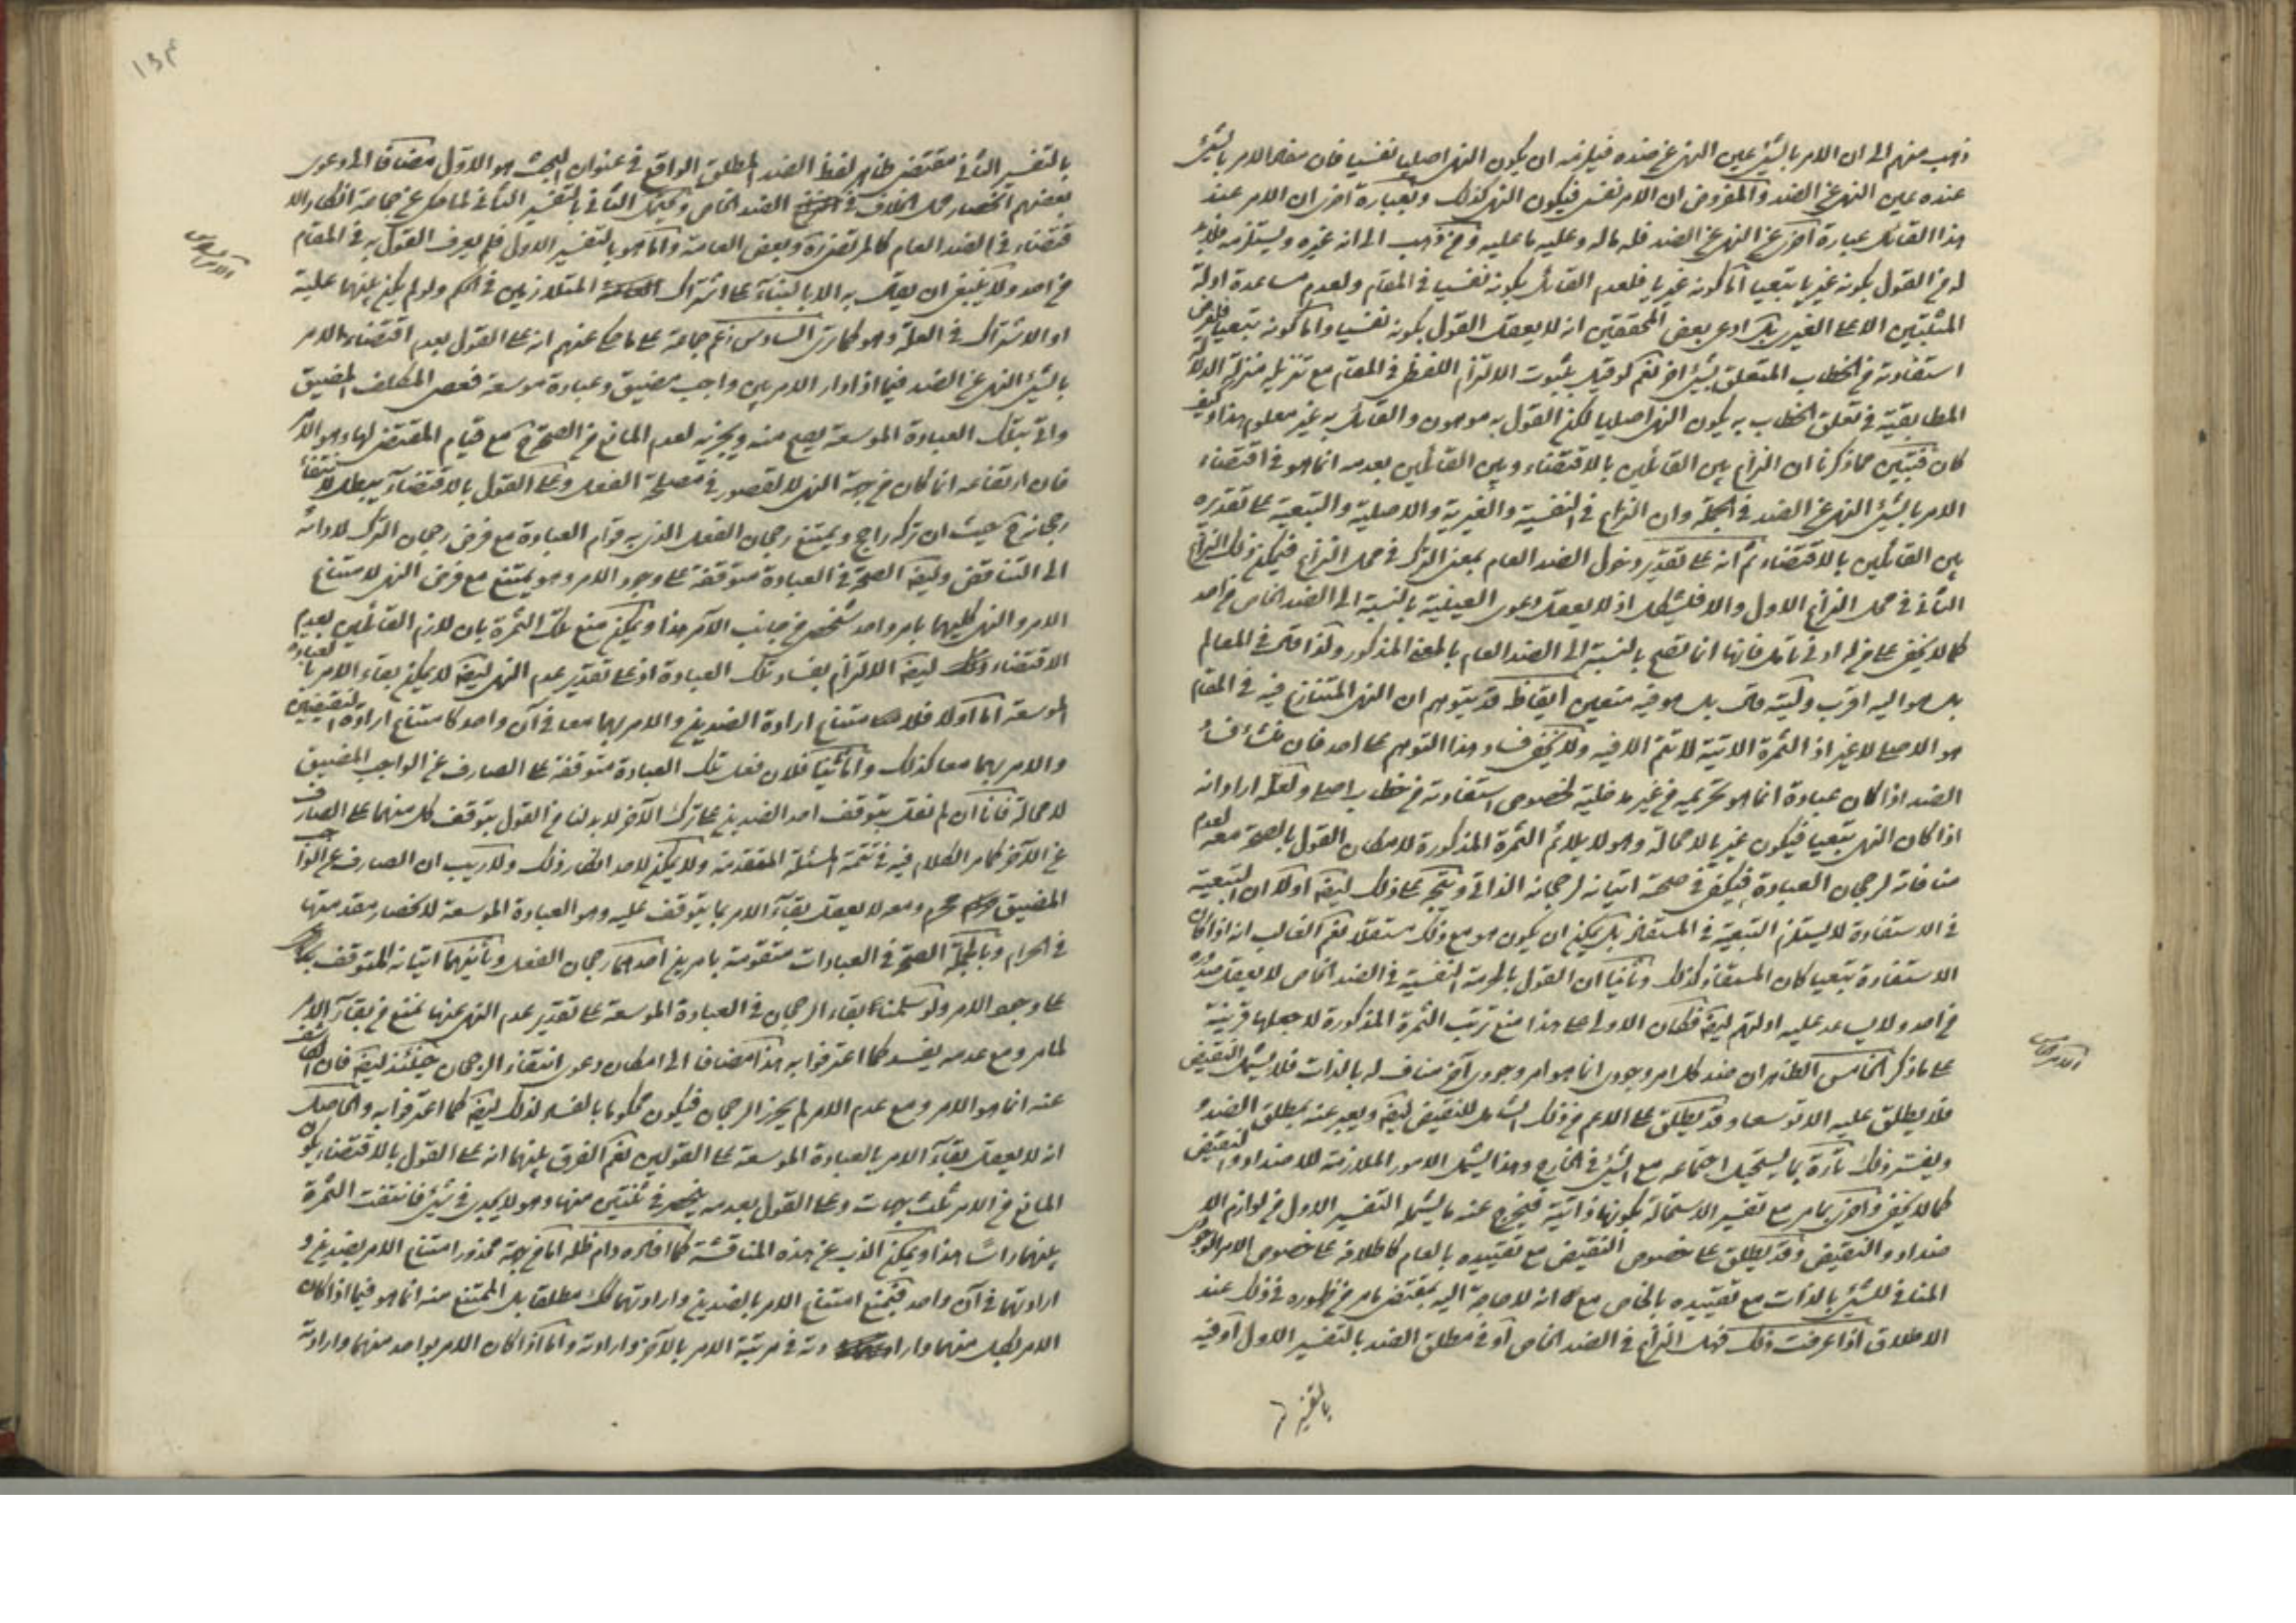 ذهب منهم الى ان الامر بالشئ عين النهى عن ضده فيلزمه ان يكون النهى اصليا نفسيا فان مفاد الامر بالشئ
عنده عين النهى عن الضد والمفروض ان الامر نفسى فيكون النهى كذلك وبعبارة اخرى ان الامر عند
هذا القائل عبارة اخرى عن النهى عن الضد فله ماله وعليه ما عليه ومن ذهب الى انه غيره ويستلزمه فلابد
له من القول بكونه غيريا تبعيا اما كونه غيريا فلعدم القائل بكونه نفسيا في المقام ولعدم مساعدة ادلة
المثبتين الا على الغيرى بل ادعى بعض المحققين انه لا يعقل القول بكونه نفسيا واما كونه تبعيا فلفرض
استفادته من الخطاب المتعلق بشئ اخر نعم لو قيل بثبوت الالتزام اللفظى في المقام مع تنزيله منزلة الدلالة
المطابقية في تعلق الخطاب به يكون النهى اصليا لكن القول به موهون والقائل به غير معلوم هذا وكيف
كان فتبين مما ذكرنا ان النزاع بين القائلين بالاقتضاء وبين القائلين بعدمه انما هو في اقتضاء
الامر بالشئ النهى عن الضد في الجملة وان النزاع في النفسية والغيرية والاصلية والتبعية على تقديره
بين القائلين بالاقتضاء ثم انه على تقدير دخول الضد العام بمعنى الترك في محل النزاع فيمكن ذلك النزاع
الثانى في محل النزاع الاول والا فيشكل اذ لا يعقل دعوى العينية بالنسبة الى الضد الخاص من احد
كما لا يخفى على من له ادنى تامل فانها انما تصح بالنسبة الى الضد العام بالمعنى المذكور ولذا قال في المعالم
بل هو اليه اقرب وليته قال بل هو فيه متعين ايقاظ قد يتوهم ان النهى المتنازع فيه في المقام
هو الاصلى لا غير اذ الثمرة الاتية لا تتم الا فيه ولا يخفى فساد هذا التوهم على احد فان منشأ فساد
الضد اذا كان عبادة انما هو تحريمه من غير مدخلية لخصوص استفادته من خطاب اصلى ولعله اراد انه
اذا كان النهى تبعيا فيكون غيريا لا محالة وهو لا يلائم الثمرة المذكورة لامكان القول بالصحة معه لعدم
منافاته لرجحان العبادة فيكفى في صحة اتيانه لرجحانه الذاتى ويتجه على ذلك ايضا اولا ان التبعية
في الاستفادة لا يستلزم التبعية في المستفاد بل يمكن ان يكون هو مع ذلك مستقلا نعم الغالب انه اذا كان
الاستفادة تبعيا كان المستفاد كذلك وثانيا ان القول بالحرمة النفسية في الضد الخاص لا يعقل صدوره
من احد ولا يساعد عليه ادلتهم ايضا فكان الاولى على هذا منع ترتب الثمرة المذكورة لا جعلها قرينة
على ما ذكر الخامس الظاهر ان ضد كل امر وجودى انما هو امر وجودى آخر مناف له بالذات فلا يشمل النقيض
فلا يطلق عليه الا توسعا وقد يطلق على الاعم من ذلك الشامل للنقيض ايضا ويعبر عنه بمطلق الضد
ويفسر ذلك تارة بما يستحيل اجتماعه مع الشئ في الخارج وهذا يشمل الامور الملازمة للاضداد والنقيض
كما لا يخفى واخرى بما مر مع تفسير الاستحالة بكونها ذاتية فيخرج عنه ما يشمله التفسير الاول من لوازم الا
ضداد والنقيض وقد يطلق على خصوص النقيض مع تقييده بالعام كاطلاقه على خصوص الامر الوجودى
المنافى للشئ بالذات مع تقييده بالخاص مع انه لا حاجة اليه بمقتضى ما مر من ظهوره في ذلك عند
الاطلاق اذا عرفت ذلك فهل النزاع في الضد الخاص او في مطلق الضد بالتفسير الاول او فيه
الامر الخامس
۱۳۴
بالتفسير الثانى مقتضى ظاهر لفظ الضد المطلق الواقع في عنوان البحث هو الاول مضافا الى دعوى
بعضهم انحصار محل الخلاف في الضد الخاص ويحتمل الثانى بالتفسير الثانى لما حكى عن جماعة انكار الا
قتضاء في الضد العام كالمرتضى ره وبعض العامة واما هو بالتفسير الاول فلم يعرف القول به في المقام
من احد ولا ينبغى ان يقال به الا بالبناء على اشتراك المتلازمين في الحكم ولو لم يكن بينهما علية
او الاشتراك في العلة وهو كما ترى السادس زعم جماعة على ما حكى عنهم انه على القول بعدم اقتضاء الامر
بالشئ النهى عن الضد فيما اذا دار الامر بين واجب مضيق وعبادة موسعة فعصى المكلف المضيق
واتى بتلك العبادة الموسعة يصح منه ويجزيه لعدم المانع من الصحة ح مع قيام المقتضى لها وهو الامر
فان ارتفاعه انما كان من جهة النهى لا لقصور في مصلحة الفعل وعلى القول بالاقتضاء يبطل لانتفاء
رجحانه ح حيث ان تركه راجح ويمتنع رجحان الفعل الذى به قوام العبادة مع فرض رجحان الترك لادائه
الى التناقض وايضا الصحة في العبادة متوقفة على وجود الامر وهو يمتنع مع فرض النهى لامتناع
الامر والنهى كليهما بامر واحد شخصى من جانب الآمر هذا ويمكن منع تلك الثمرة بان لازم القائلين بعدم
الاقتضاء ايضا الالتزام بفساد تلك العبادة اذ على تقدير عدم النهى ايضا لا يمكن بقاء الامر بالعبادة
الموسعة اما اولا فلامتناع ارادة الضدين والامر بهما معا في آن واحد كامتناع ارادة النقيضين
والامر بهما معا كذلك واما ثانيا فلان فعل تلك العبادة متوقفة على الصارف عن الواجب المضيق
لا محالة فانا ان لم نقل بتوقف احد الضدين على ترك الآخر لابد لنا من القول بتوقف كل منهما على الصارف
عن الآخر كما مر الكلام فيه في تتمة المسئلة المتقدمة ولا يمكن لاحد انكار ذلك ولا ريب ان الصارف عن الواجب
المضيق محرم ومعه لا يعقل بقاء الامر بما يتوقف عليه وهو العبادة الموسعة لانحصار مقدمتها
في الحرام وبالجملة الصحة في العبادات متقومة بامرين احدهما رجحان الفعل وثانيهما اتيانه المتوقف
على وجود الامر ولو سلمنا بقاء الرجحان في العبادة الموسعة على تقدير عدم النهى عنها نمنع من بقاء الامر
لما مر ومع عدمه يفسد كما اعترفوا به هذا مضافا الى امكان دعوى انتفاء الرجحان حينئذ ايضا فان الكاشف
عنه انما هو الامر ومع عدم الامر لم يحرز الرجحان فيكون محكوما بالفساد لذلك ايضا كما اعترفوا به والحاصل
انه لا يعقل بقاء الامر بالعبادة الموسعة على القولين نعم الفرق بينهما انه على القول بالاقتضاء يكون
المانع من الامر ثلث جهات وعلى القول بعدمه ينحصر في ثنتين منها وهو لا يجدى في شئ فانتفت الثمرة
بينهما راسا هذا ويمكن الذب عن هذه المناقشة كما افاده دام ظله اما من جهة محذور امتناع الامر بضدين و
ارادتهما في آن واحد فيمنع امتناع الامر بالضدين وارادتهما كذلك مطلقا بل الممتنع منه انما هو فيما اذا كان
الامر بكل منهما وارادته في مرتبة الامر بالآخر وارادته واما اذا كان الامر بواحد منهما وارادته
الامر السادس
بالتفسير